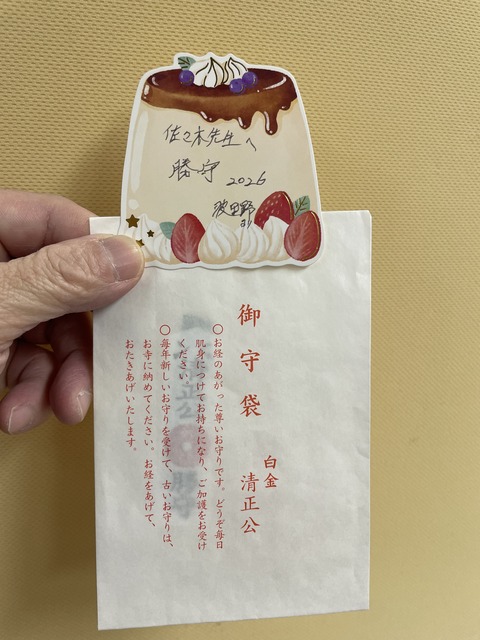 佐々木先生へ
勝守 2026
波田野
より
御守袋
白金 清正公
○お経のあがった尊いお守りです。どうぞ毎日
肌身につけてお持ちになり、ご加護をお受け
ください。
○毎年新しいお守りを受けて、古いお守りは、
お寺に納めてください。お経をあげて、
おたきあげいたします。